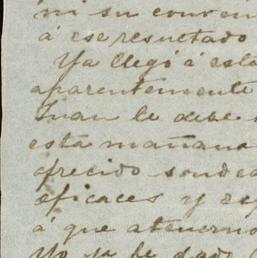 ni su conven
á ese resultado
Ya llegó á esta
aparentemente
Juan le debe
esta mañana
ofrecido sondea
eficaces y se
á que atenerno
Yo ya he dado